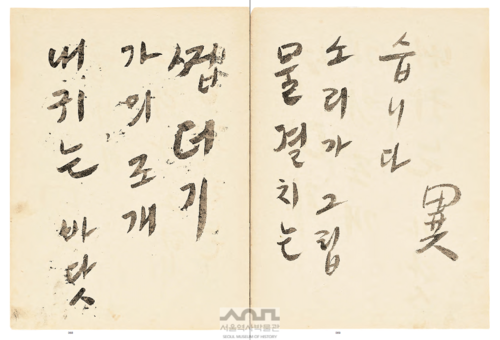 내 귀는 바닷
가의 조개
껍더기
물결치는
소리가 그립
습니다
異
서울역사박물관
SEOUL MUSEUM OF HISTORY